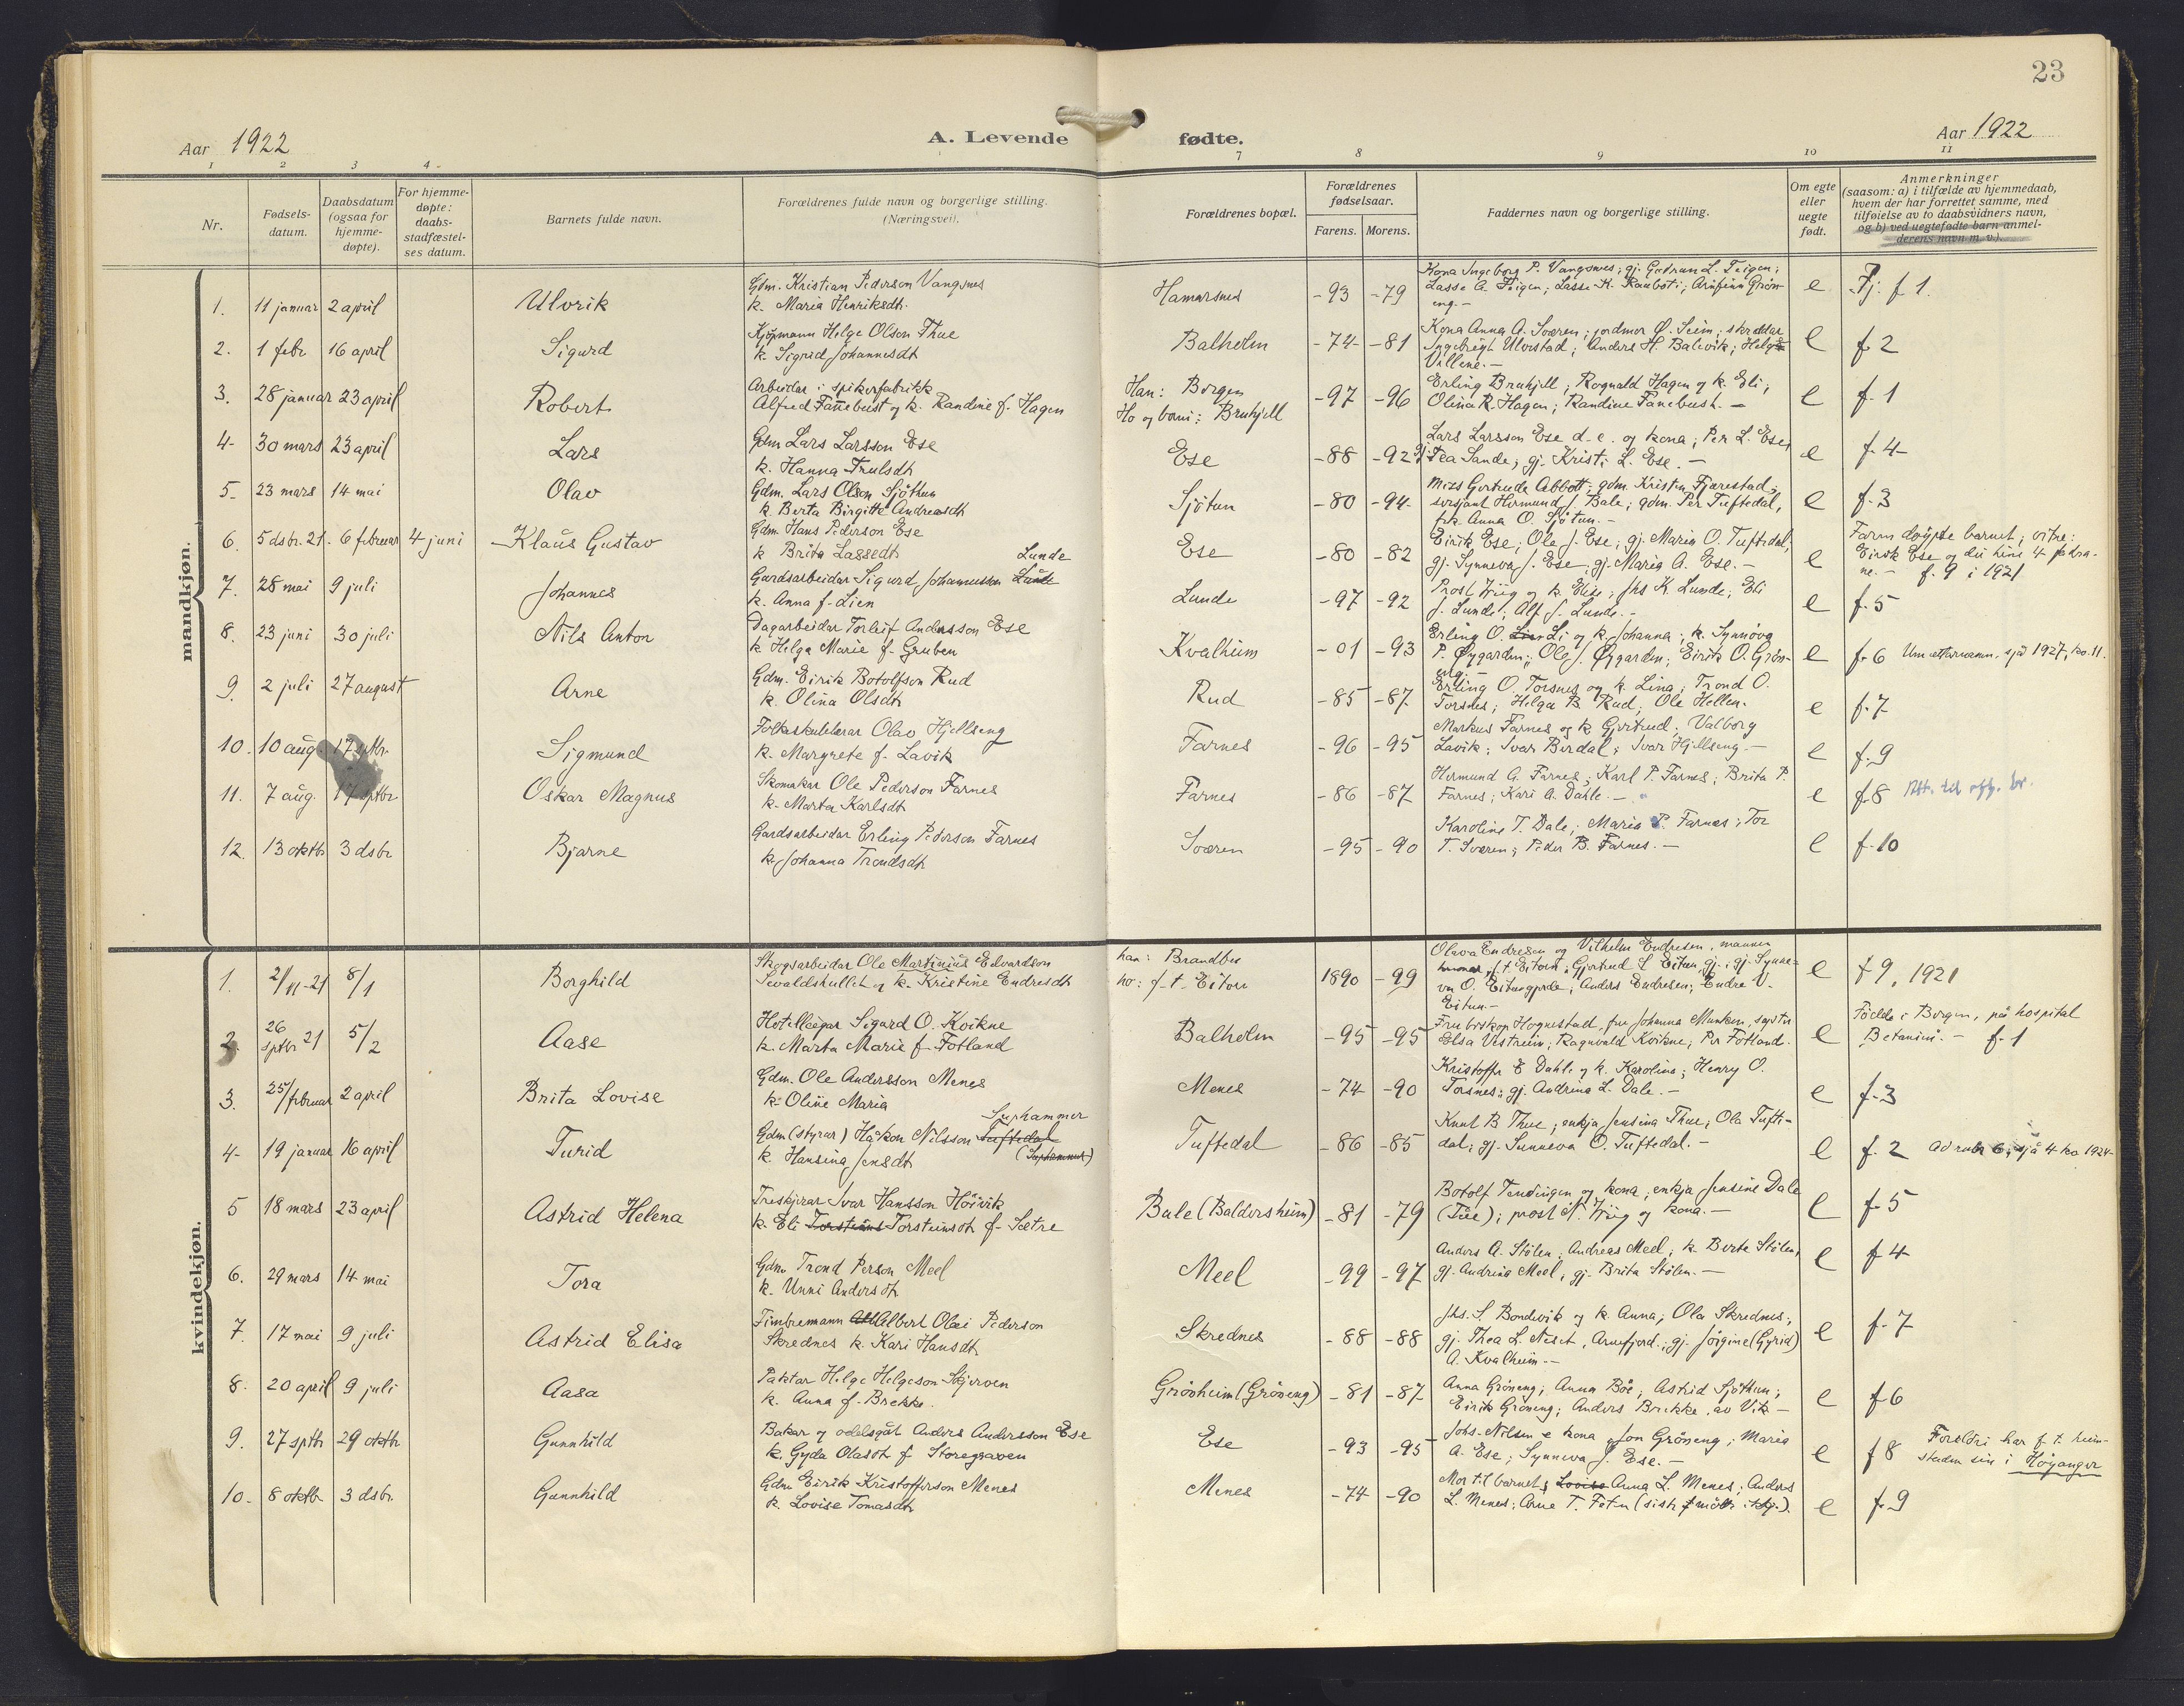 23
Aar 1922
A. Levende fødte.
Aar 1922
1 2 3 4 7 8 9 10 11
Nr.
Fødsels-
datum.
Daabsdatum
(ogsaa for
hjemme-
døpte).
For hjemme-
døpte:
daabs-
stadfæstel-
ses datum.
Barnets fulde navn.
Forældrenes fulde navn og borgerlige stilling.
(Næringsvei).
Forældrenes bopæl.
Forældrenes
fødselsaar.
Farens. Morens.
Faddernes navn og borgerlige stilling.
Om egte
eller
uegte
født.
Anmerkninger
(saasom: a) i tilfælde av hjemmedaab,
hvem der har forrettet samme, med
tilføielse av to daabsvidners navn,
og b) ved uegtefødte barn anmel-
derens navn m. v.).
mandkjøn.
1. 11 januar 2 april Ulvrik
Gdm. Kristian Pederson Vangsnes
k. Maria Henriksdt.
Hamarsnes -93 -79
Kona Ingeborg P. Vangsnes; gj. Gudrun L. Feigen;
Lasse A. Feigen; Lasse H.
eng. -
e f 1.
2. 1 febr 16 april Sigurd
Kjøpmann Helge Olson Thue
k. Sigrid Johannesdt
Balholm -74 -81
Kona Anna A. Sværen; jordmor Ø. Seim; skreddar
Ingebrigt Ulvestad; Anders H. Balevik; Helge
Villene. -
e f 2
3. 28 januar 23 april Robert
Arbeidar i spikerfabrikk
Alfred Fannebust og k. Randine f. Hagen
Han: Bergen
Ho og barni: Bruhjell
-97 -96
Erling Bruhjell; Rognald Hagen og k. Eli;
Olina R. Hagen; Randine Fanebust. -
e f. 1
4- 30 mars 23 april Lars
Gdm Lars Larsson Ese
k. Hanna Trulsdt
Ese -88 -92
Lars Larsson Ese d.e. og kona; Per L. Ese;
gj. Tea Sande; gj. Kristi L. Ese. -
e f. 4-
5. 23 mars 14 mai Olav
Gdm. Lars Olson Sjøthun
k. Berta Birgitte Andreasdt
Sjötun -80 -94
Miss Gertrude Abbott; gdm. Kristen Fjærestad;
sersjant Hermund J. Bale; gdm. Per Tuftedal,
frk. Anna O. Sjötun. -
e f. 3
6. 5 dsbr. 21. 6 februar 4 juni Klaus Gustav
Gdm. Hans Pederson Ese
k Brita Lassedt
Ese -80 -82
Eirik Ese; Ole J. Ese; gj. Maria O. Tuftedal;
gj. Synneva J. Ese; gj. Maria A. Ese. -
e
Farm døypte barnet; vitne:
Eirik Ese og dei hine 4 fadra-
ne. - f. 9 i 1921
7. 28 mai 9 juli Johannes
Lunde
Gardsarbeidar Sigurd Johannesson Lunde
k. Anna f. Lien
Lunde -97 -92
Prost Wiig og k. Elise; Jhs K. Lunde; Eli
J. Lunde; Alf J. Lunde. -
e f. 5
8. 23 juni 30 juli Nils Anton
Dagarbeidar Torleif Andersson Ese
k Helga Marie f. Gruben
Kvalheim -01 -93
Erling O. Lien Li og k. Johanna; k. Synnöva
P. Øygarden; Ole J. Øygarden; Eirik O. Grön-
eng. -
e f. 6 Um etternamn, sjå 1927, ko. 11.
9. 2 juli 27 august Arne
Gdm. Eirik Botolfson Rud
k. Olina Olsdt
Rud -85 -87
Erling O. Torsnes og k. Lina; Trond O.
Torsnes; Helga B. Rud; Ole Hellen.
e f. 7
10. 10 aug. 17 sptbr. Sigmund
Folkeskulelærar Olav Hjellseng
k. Margrete f. Lavik
Farnes -96 -95
Markus Farnes og k Gjertrud; Valborg
Lavik; Ivar Berdal; Ivar Hjellseng. -
e f. 9
11. 7 aug. 17 sptbr Oskar Magnus
Skomakar Ole Pederson Farnes
k. Marta Karlsdt
Farnes -86 -87
Hermund G. Farnes; Karl P. Farnes; Brita P.
Farnes; Kari A. Dahle. -
e f. 8
12. 13 oktbr 3 dsbr Bjarne
Gardsarbeidar Erling Pederson Farnes
k. Johanna Trondsdt
Sværen -95 -90
Karoline T. Dale; Maria P. Farnes; Tor
T. Sværen; Peder B. Farnes. -
e f. 10
kvindekjøn.
1. 2/11-21 8/1 Borghild
Skogsarbeidar Ole Martinius Edvardson
Sevaldshullet og k. Kristine Endresdt
han: Brandbu
ho: f.t. Eitorn
1890 -99
Olava Endresen og Vilhelm Endresen, mannen
f.t. Eitorn; Gjertrud L Eitun; gj. Synne-
va O. Anders Endresen; Endre V.
Eitun. -
e f 9, 1921
2. 26 sptbr 21 5/2 Aase
Hotelleigar Sigurd O. Kvikne
k. Marta Marie f. Fotland
Balholm -95 -95
Fru biskop Hognestad, fru Johanna Munken, syster
Elsa Vestrheim; Ragnvald Kvikne; Per Fotland.
e
Födde i Bergen, på hospital
Betanien. - f. 1
3. 25/februar 2 april Brita Lovise
Gdm. Ole Andersson Menes
k. Oline Maria
Menes -74 -90
Kristoffer E Dahle og k. Karolina; Henry O.
Torsnes; gj. Andrina L. Dale. -
e f. 3
4- 19 januar 16 april Turid
Suphammer
Gdm (styrar) Håkon Nilsson Tuftedal
(Suphammer)
k. Hansina Jensdt
Tuftedal -86 -85
Knut B Thue; enkja Jensina Thue; Ola Tufte-
dal; gj. Sunneva O. Tuftedal. -
e f. 2 Ad rubr 6, sjå 4 ko 1924
5 18 mars 23 april Astrid Helena
Treskjerar Ivar Hansson Höivik
k. Eli Torsteins Torsteinsdt f. Sætre
Bale (Baldersheim) -81 -79
Botolf Tendingen og kona; enkja Jensine Dale
(Tue); prost N. Wiig og kona. -
e f. 5
6. 29 mars 14 mai Tora
Gdm Trond Person Meel
k. Unni Andersdt
Meel -99 -97
Anders A. Stölen; Andreas Meel; k. Berta Stölen;
gj. Andrina Meel; gj. Brita Stölen. -
e f 4
7. 17 mai 9 juli Astrid Elisa
Timbremann Alb Albert Olai Pederson
Skrednes k. Kari Hansdt
Skrednes -88 -88
Jhs. S. Bondevik og k. Anna; Ola Skrednes;
gj. Thea L. Neset, Arnefjord; gj. Jörgine (Gyrid)
A. Kvalheim. -
e f. 7
8. 20 april 9 juli Aasa
Paktar Helge Helgeson Skjerven
k. Anna f. Brekke.
Grönheim (Gröneng) -81 -87
Anna Gröneng; Anna Böe; Astrid Sjöthun;
Eirik Gröneng; Anders Brekke, av Vik -
e f 6
9. 27 sptbr 29 oktbr Gunnhild
Bakar og odelsgut Anders Andersson Ese
k. Gyda Olasdt f Storegraven
Ese -93 -95
Johs. Nilsen e kona og Jon Gröneng; Maria
A. Ese; Synneva J. Ese. -
e f 8
Foreldri har f.t. heim-
staden sin i Høyanger
10. 8 oktbr 3 dsbr. Gunnhild
Gdm Eirik Kristofferson Menes
k. Lovise Tomasdt
Menes -74 -90
Mor til barnet; Lovise Anna L. Menes; Anders
L. Menes; Arne T. (sist i kyrj.).
e f. 9